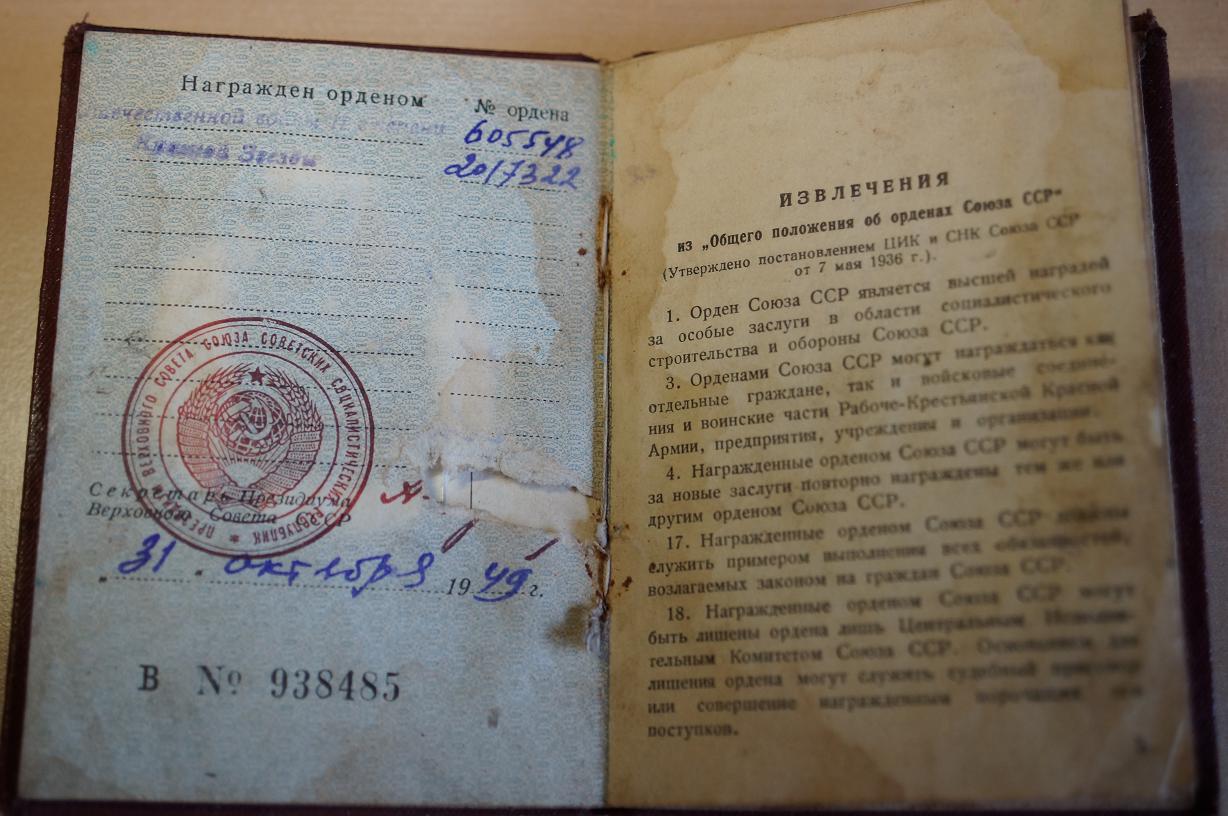 Награжден орденом № ордена
Отечественной войны II степени 605548
Красной Звезды 2017322
ПРЕЗИДИУМ ВЕРХОВНОГО СОВЕТА СОЮЗА СОВЕТСКИХ СОЦИАЛИСТИЧЕСКИХ РЕСПУБЛИК
Секретарь Президиума
Верховного Совета СССР
„31 " октября 1949 г.
В № 938485
ИЗВЛЕЧЕНИЯ
из „Общего положения об орденах Союза ССР"
(Утверждено постановлением ЦИК и СНК Союза ССР
от 7 мая 1936 г.).
1. Орден Союза ССР является высшей наградой
за особые заслуги в области социалистического
строительства и обороны Союза ССР.
3. Орденами Союза ССР могут награждаться как
отдельные граждане, так и войсковые соедине-
ния и воинские части Рабоче-Крестьянской Красной
Армии, предприятия, учреждения и организации.
4. Награжденные орденом Союза ССР могут быть
за новые заслуги повторно награждены тем же или
другим орденом Союза ССР.
17. Награжденные орденом Союза ССР должны
служить примером выполнения всех обязанностей,
возлагаемых законом на граждан Союза ССР.
18. Награжденные орденом Союза ССР могут
быть лишены ордена лишь Центральным Исполни-
тельным Комитетом Союза ССР. Основанием для
лишения ордена могут служить судебный приговор
или совершение награжденным порочащих его
поступков.